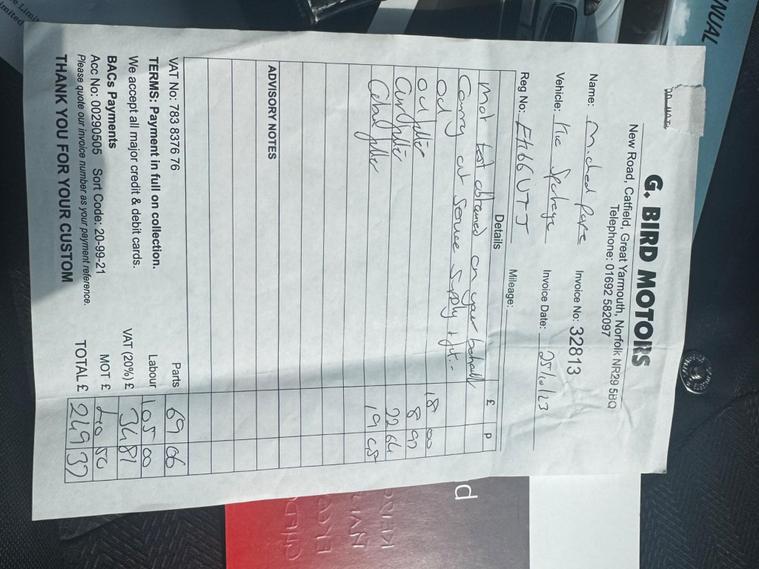 G. BIRD MOTORS
New Road, Catfield, Great Yarmouth, Norfolk NR29 5BQ
Telephone: 01692 582097
Name: Invoice No: 32813
Vehicle: Kia Sportage Invoice Date: 25/10/23
Reg No: Mileage:
Details £ P
Mot test obtained on your behalf
Carry out Service Supply & fit:-
Oil 18 00
Oil filter 8
Air filter 22 64
filter 19
ADVISORY NOTES
VAT No: 783 8376 76 Parts 69 06
TERMS: Payment in full on collection. Labour 105 00
We accept all major credit & debit cards. VAT (20%) £ 34 81
BACs Payments MOT £ 40 50
Acc No: 00290505 Sort Code: 20-99-21
Please quote our invoice number as your payment reference. TOTAL £ 249 37
THANK YOU FOR YOUR CUSTOM
NUAL
d